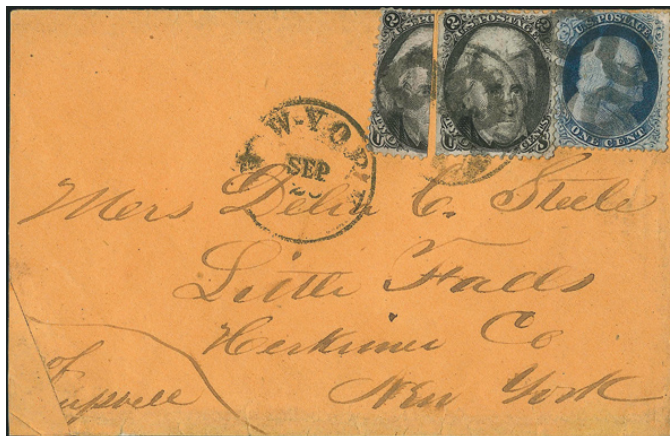 U.S. POSTAGE
U.S. POSTAGE
U.S. POSTAGE
2
2 2
ONE CENT
W-YORK
SEP
Mers Delia C. Steele
Little Falls
Herkimer Co
New York
of